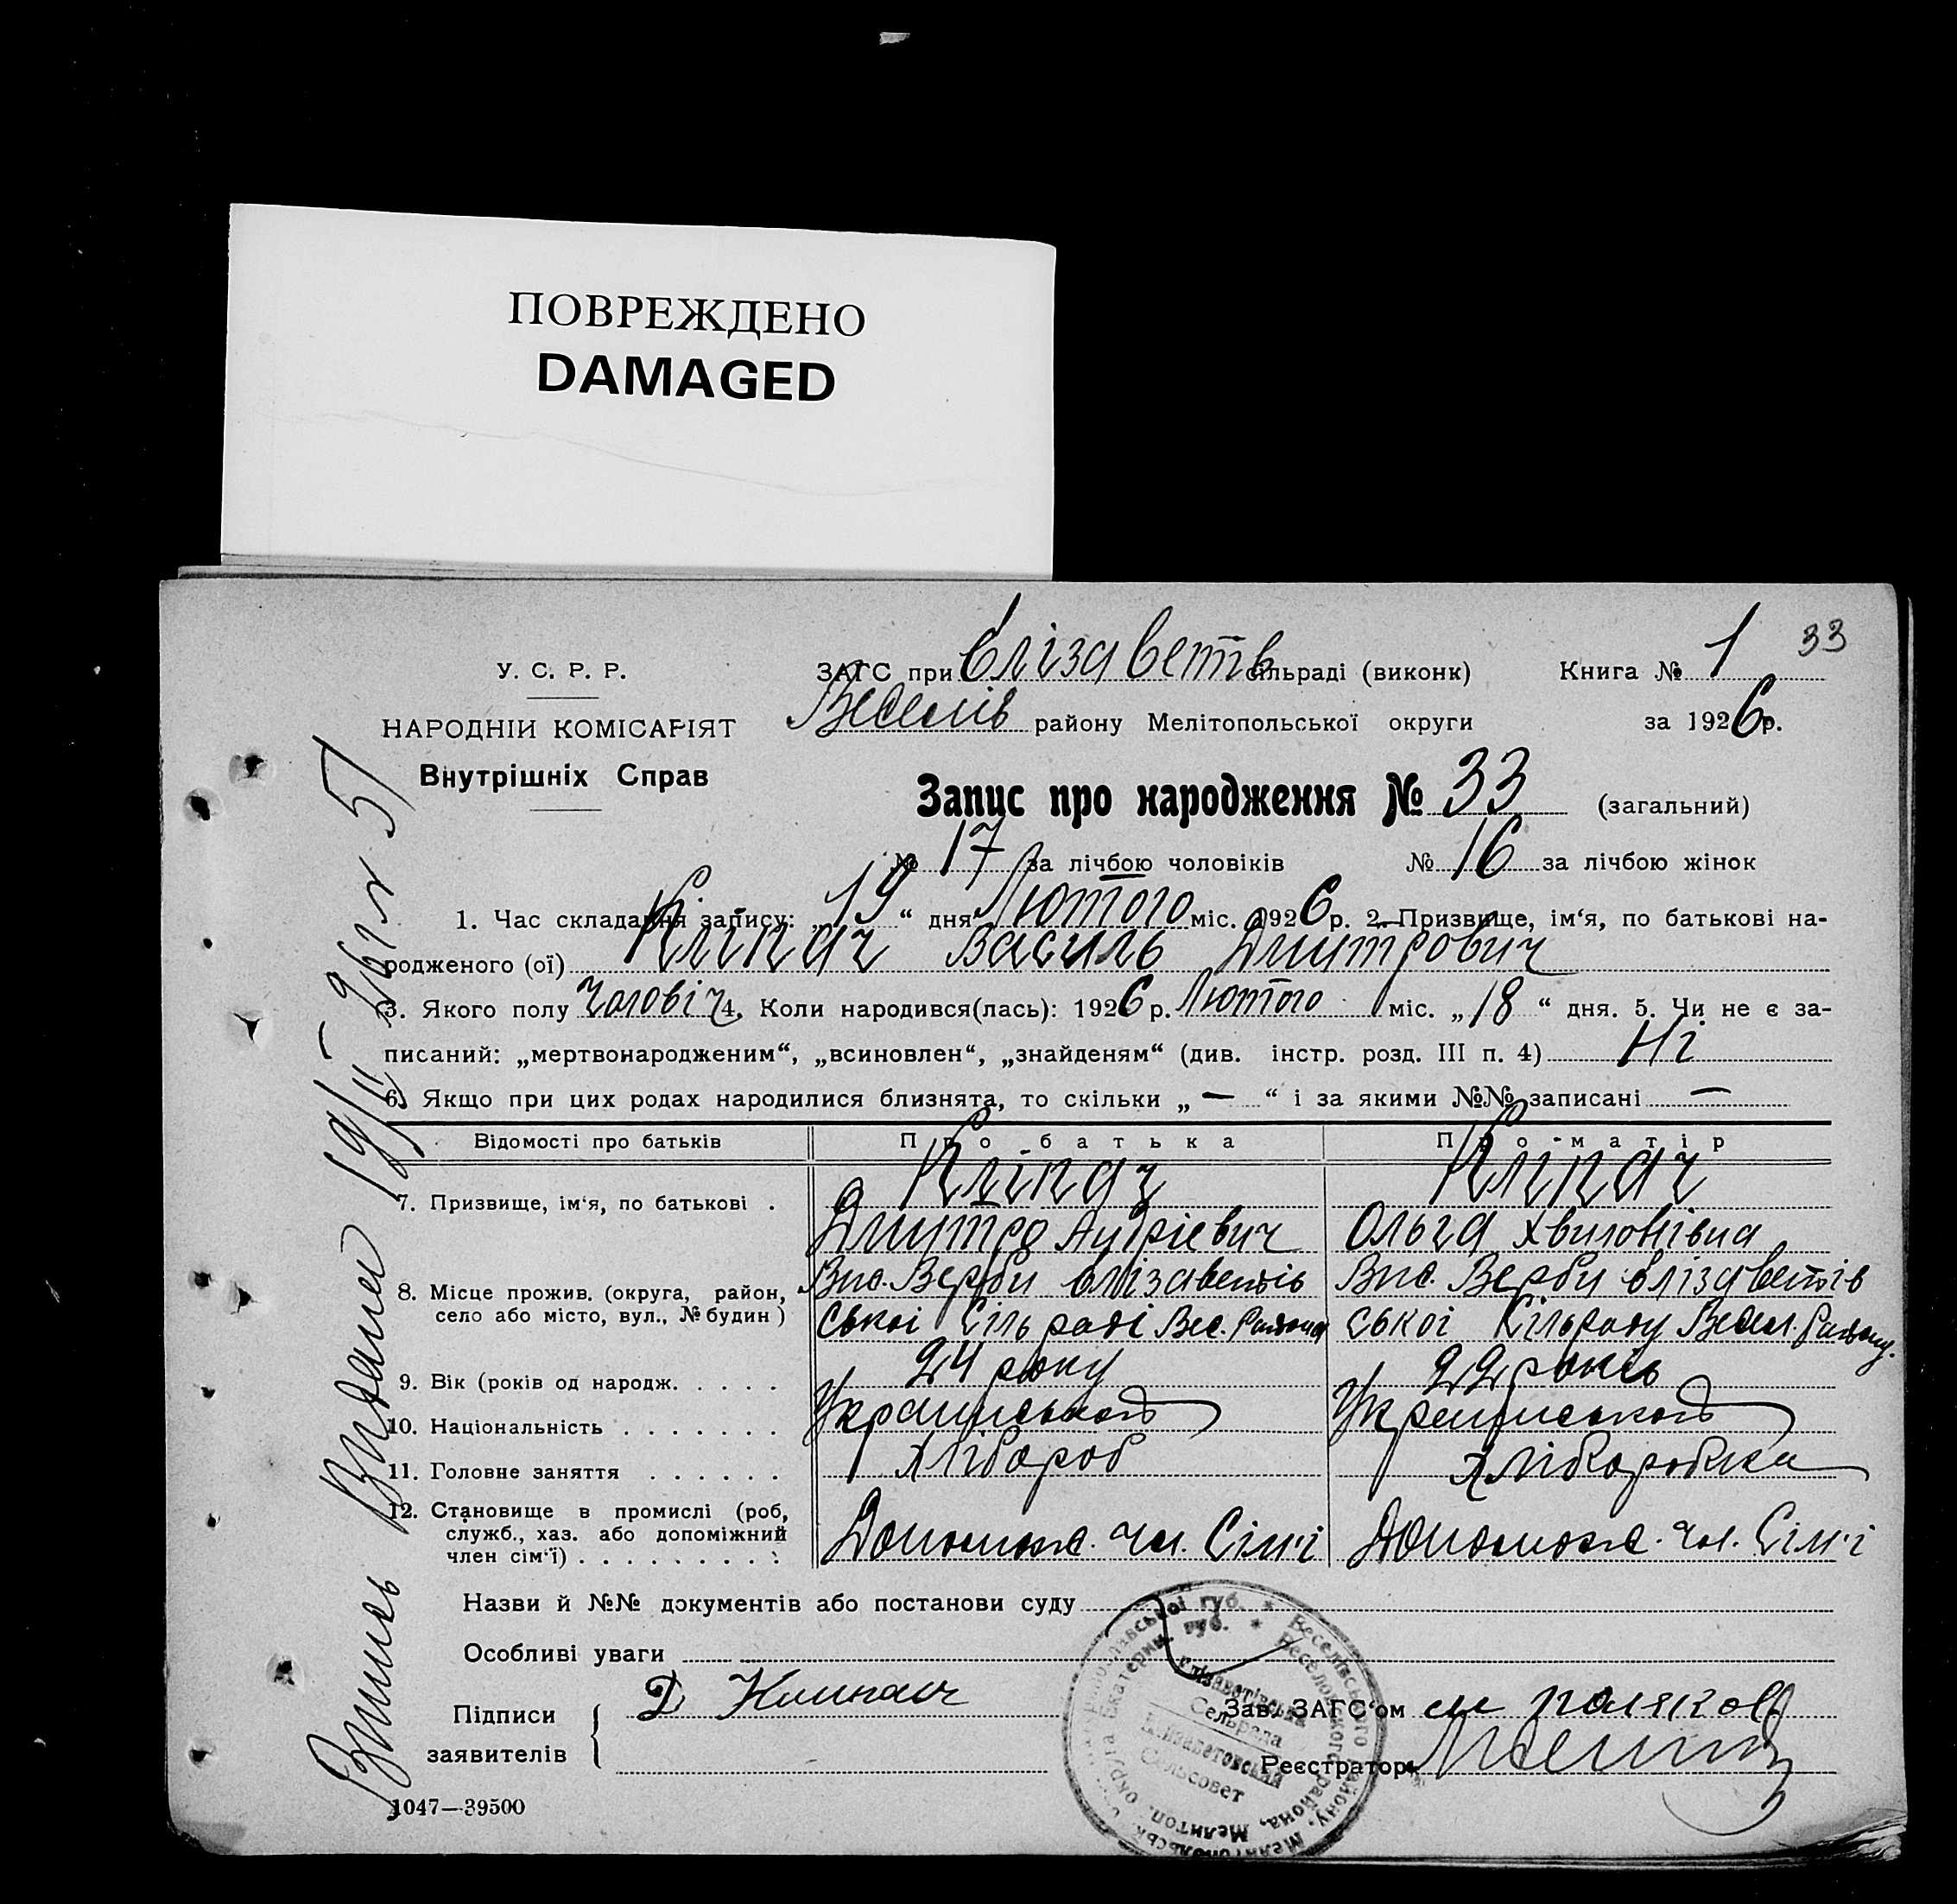 ПОВРЕЖДЕНО
DAMAGED
33
У. С. Р. Р.
ЗАГС при Єлізаветів сільраді (виконк) Книга № 1
НАРОДНІЙ КОМІСАРІЯТ
Веселів району Мелітопольської округи за 1926 р.
Внутрішніх Справ
Запис про народження № 33 (загальний)
№ 17 за лічбою чоловіків № 16 за лічбою жінок
1. Час складання запису: „19“ дня Лютого міс. 1926 р. 2. Призвище, ім‘я, по батькові на-
родженого (ої) Кліпач Василь Дмитрович
3. Якого полу Чоловіч 4. Коли народився(лась): 1926 р. Лютого міс. „18“ дня. 5. Чи не є за-
писаний: „мертвонародженим“, „всиновлен“, „знайденям“ (див. інстр. розд. III п. 4) Ні
6. Якщо при цих родах народилися близнята, то скільки „ — “ і за якими №№ записані —
Відомості про батьків Про батька Про матір
7. Призвище, ім‘я, по батькові . Кліпач Кліпач
Дмитро Андрієвич Ольга Хвилонівна
8. Місце прожив. (округа, район, село або місто, вул., № будин) Вис. Верби Єлізаветів Вис. Верби Єлізаветів
ської Сільраді Вес. Района ської Сільраду Весел. Району.
9. Вік (років од народж. . . . . 24 року 22 років
10. Національність . . . . . . . Українського Українського
11. Головне заняття . . . . . . Хлібороб Хліборобка
12. Становище в промислі (роб, служб., хаз. або допоміжний член сім‘ї) . . . . . . . . . . Допомож. чл. Сім'ї Допомож. чл. Сім'ї
Назви й №№ документів або постанови суду
Особливі уваги
Підписи заявителів Д Клипач
Зав. ЗАГС‘ом
Реєстратор
Єлізаветівська
Сельрада
Елизаветовский
Сельсовет
1047—39500
Випись Видана 19/II-26 г № 51